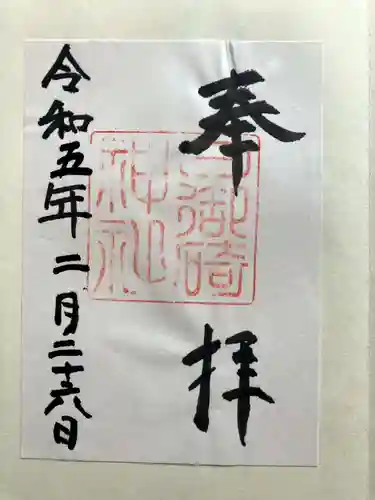 奉拝
日御碕
神社
令和五年二月二十六日